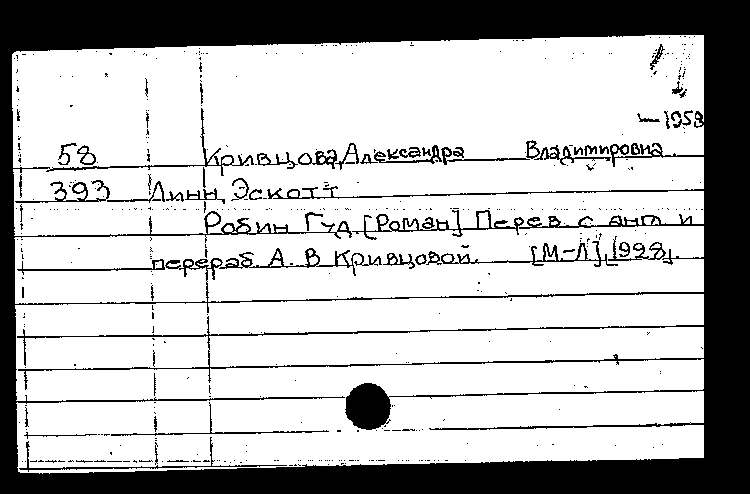 — 1958
58 Кривцова, Александра Владимировна.
393 Линн, Эскотт
Робин Гуд. [Роман] Перев. с англ и
перераб. А. В Кривцовой. [М.-Л], [1928].